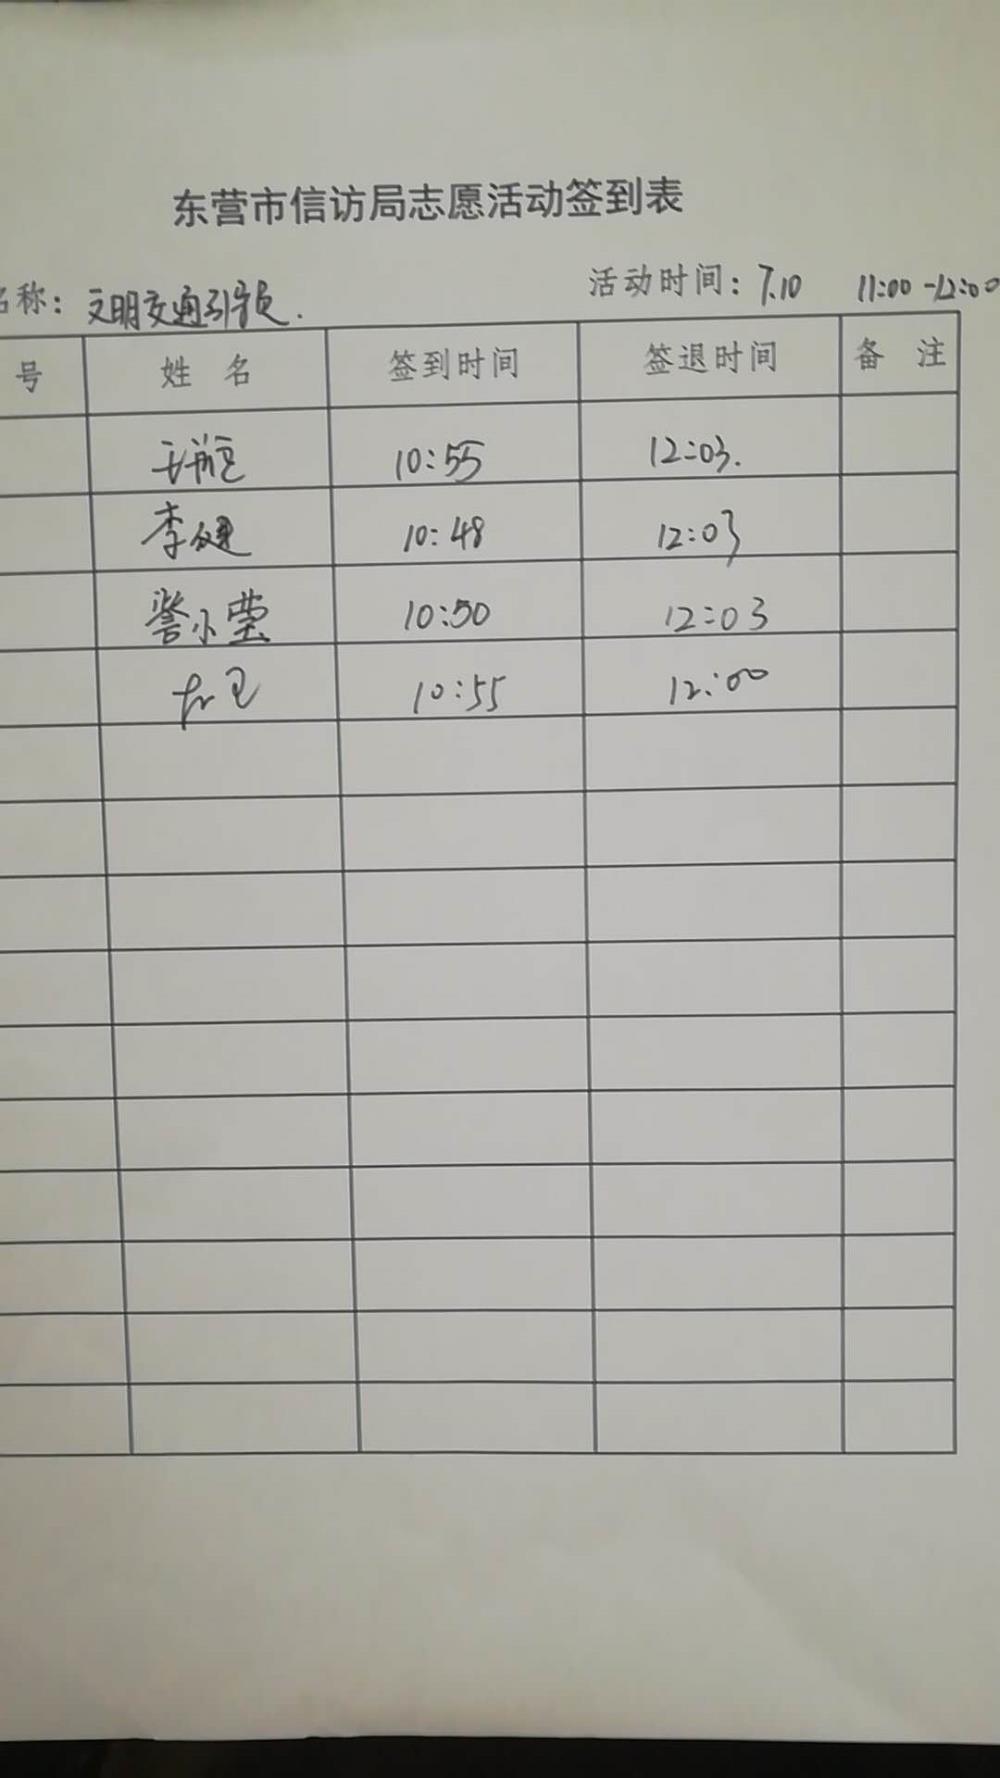 东营市信访局志愿活动签到表
名称：文明交通引导员. 活动时间：7.10 11:00-12:00
号 姓名 签到时间 签退时间 备注
10:55 12:03.
李健 10:48 12:03
訾小莹 10:50 12:03
10:55 12:00